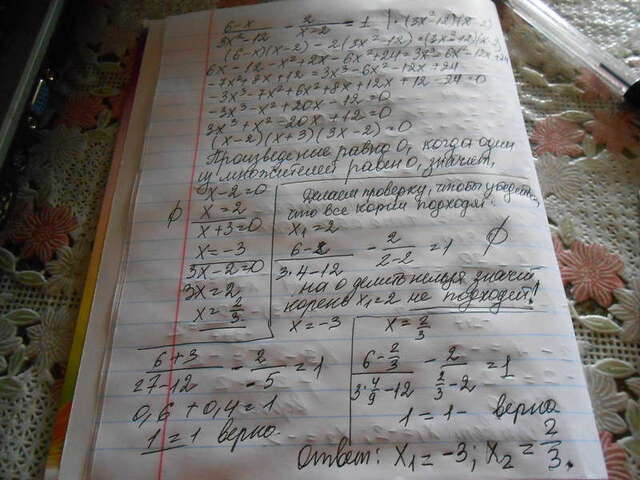 (6-x)/(3x²-12) - 2/(x-2) = 1 | ·(3x²-12)(x-2)
(6-x)(x-2) - 2(3x²-12) = (3x²-12)(x-2)
6x - 12 - x² + 2x - 6x² + 24 = 3x³ - 6x² - 12x + 24
-7x² + 8x + 12 = 3x³ - 6x² - 12x + 24
-3x³ - 7x² + 6x² + 8x + 12x + 12 - 24 = 0
-3x³ - x² + 20x - 12 = 0
3x³ + x² - 20x + 12 = 0
(x-2)(x+3)(3x-2) = 0
Произведение равно 0, когда один
из множителей равен 0, значит,
x-2=0
∅ x=2
x+3=0
x=-3
3x-2=0
3x=2
x=2/3
Делаем проверку, чтоб убедиться,
что все корни подходят:
x₁=2
(6-2)/(3·4-12) - 2/(2-2) = 1 ∅
на 0 делить нельзя значит
корень x₁=2 не подходит!
x=-3
(6+3)/(27-12) - 2/(-5) = 1
0,6 + 0,4 = 1
1 = 1 верно
x=2/3
(6-2/3)/(3·4/9-12) - 2/(2/3-2) = 1
1 = 1 - верно
Ответ: x₁=-3; x₂=2/3.